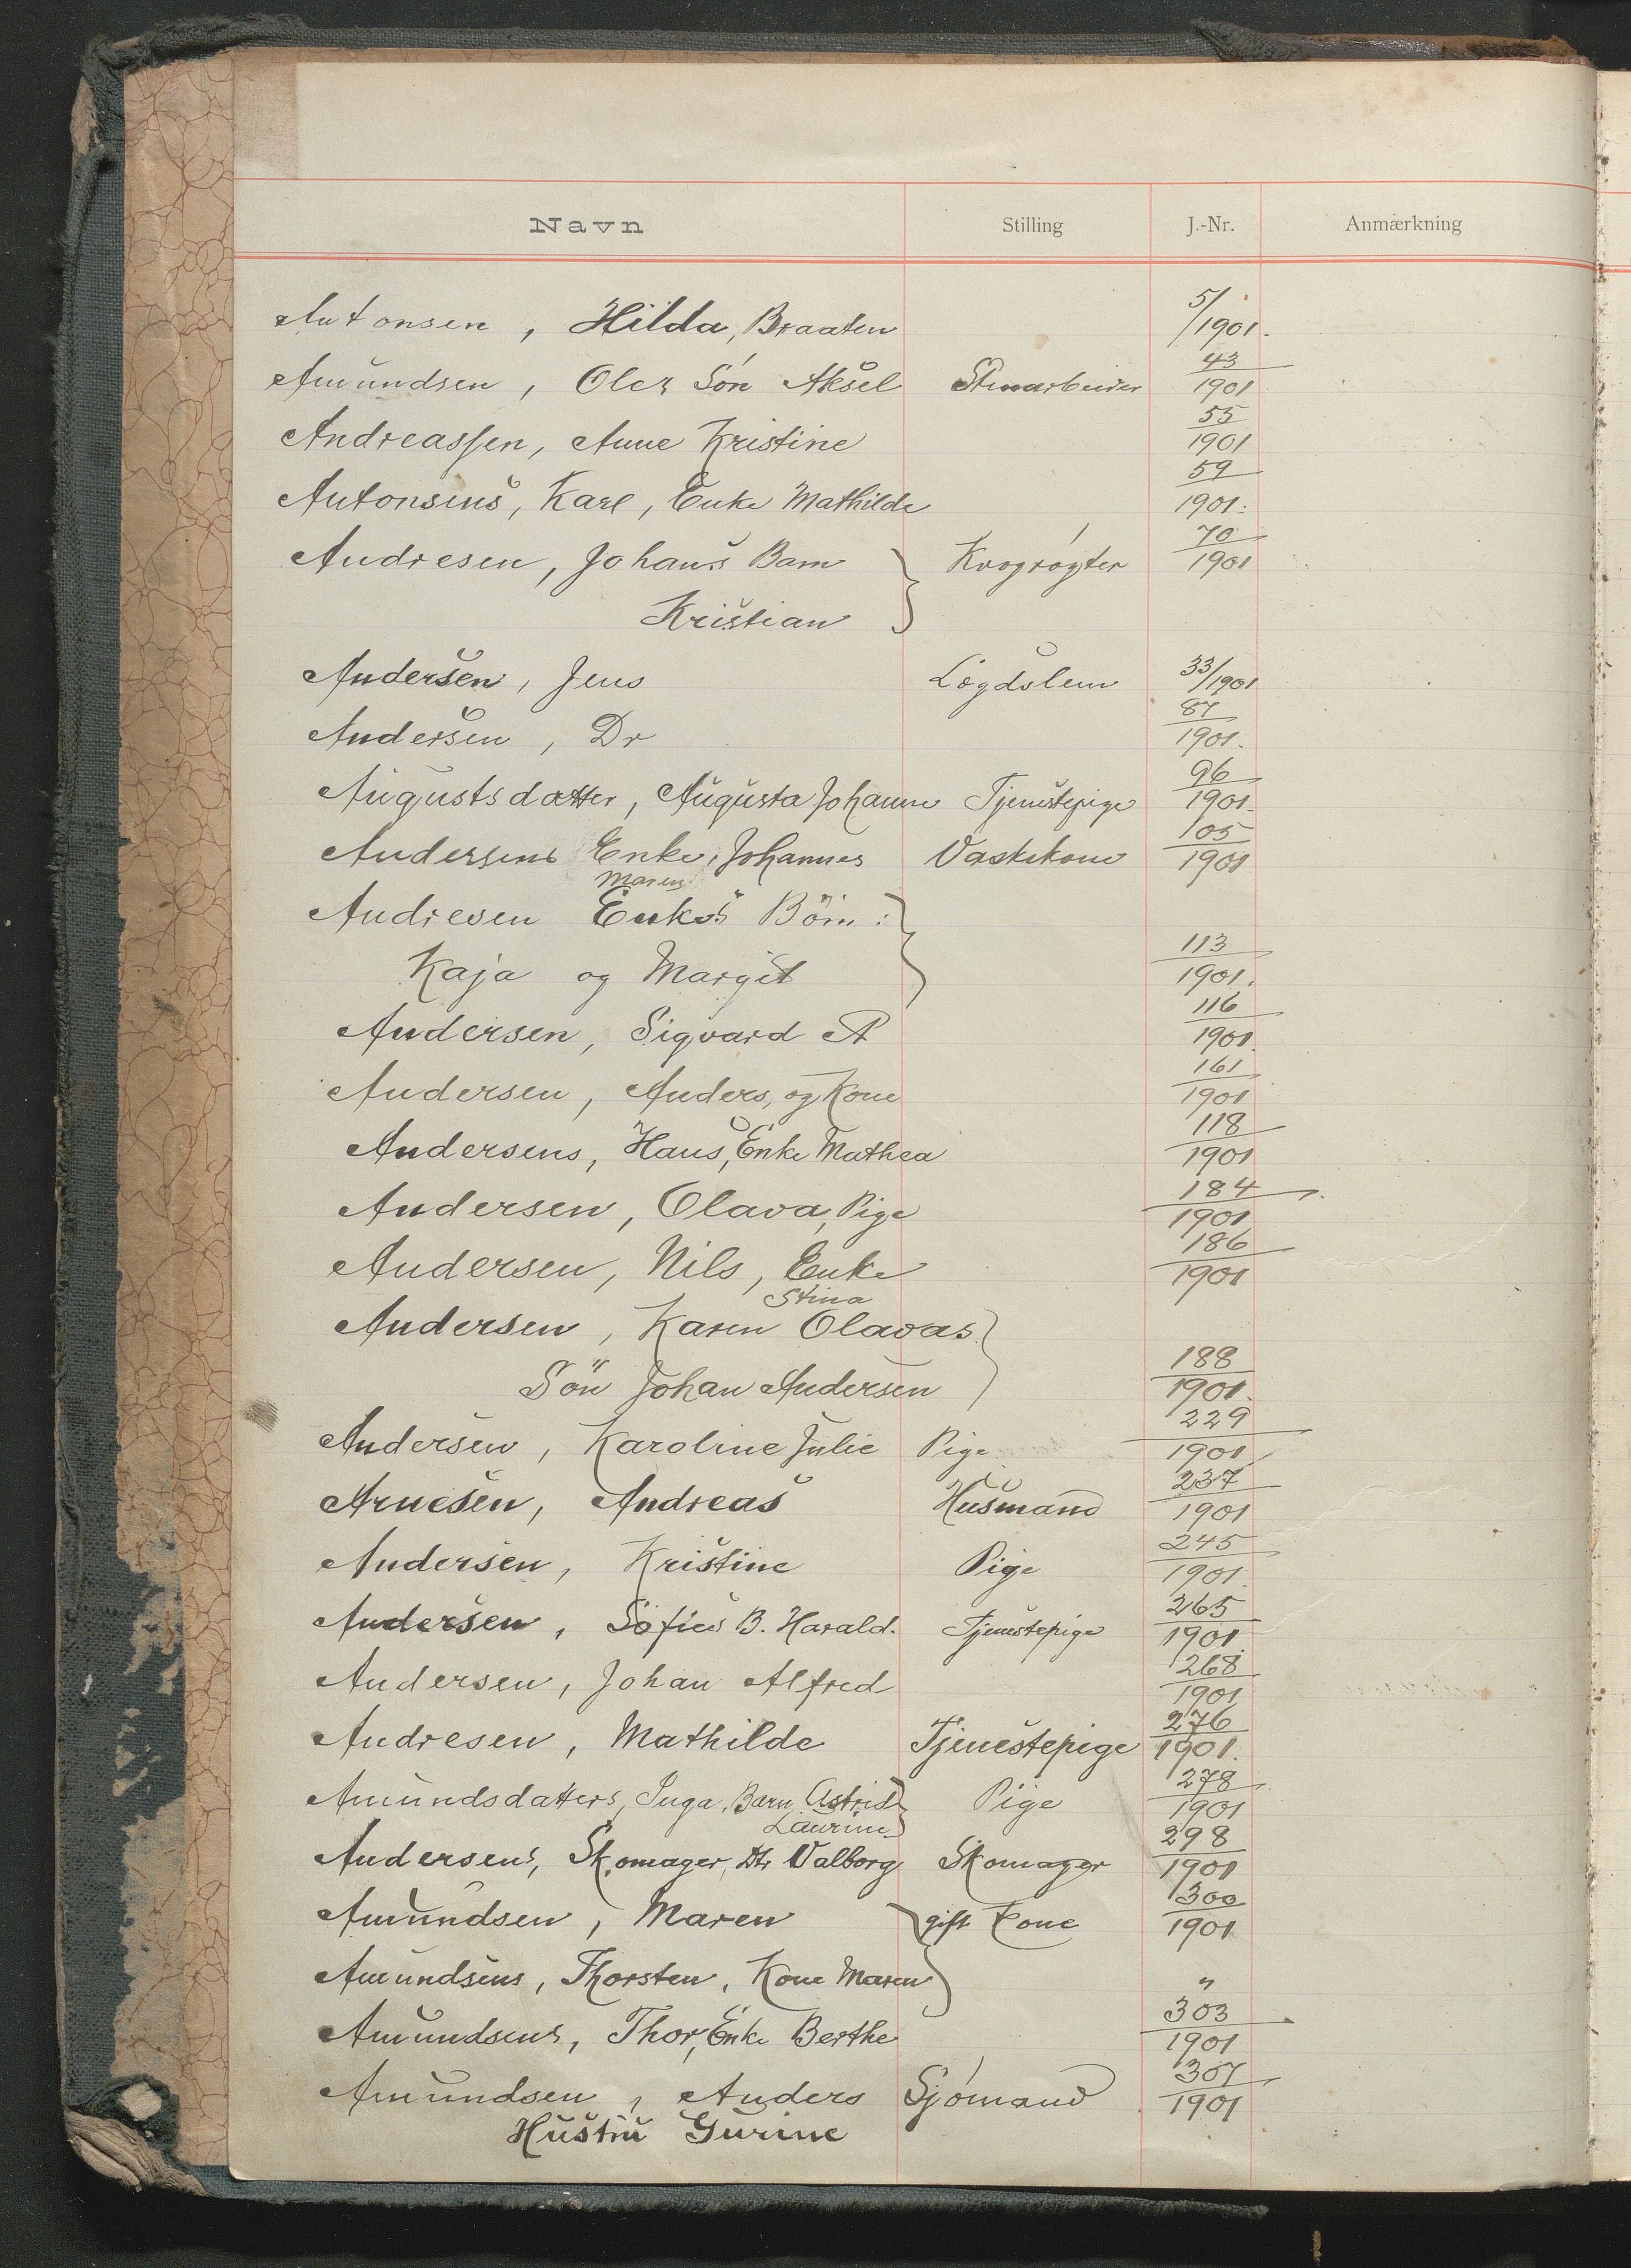 Navn Stilling J.-Nr. Anmærkning
Antonsen, Hilda, Braaten 5/1901.
Amundsen, Oles Søn Aksel Stenarbeider 43/1901
Andreassen, Anne Kristine 55/1901
Antonsens, Karl, Enke Mathilde 59/1901.
Andresen, Johan's Barn Kvægrøgter 70/1901
Kristian
Andersen, Jens Lægdslem 33/1901
Andersen, Dr 87/1901.
Augustsdatter, Augusta Johanne Tjenestepige 96/1901.
Andersens Enke, Johannes Vaskekone 105/1901
Maren
Andresen Enkes Børn:
Kaja og Margit 113/1901.
Andersen, Sigvard A 116/1901.
Andersen, Anders, og Kone 161/1901
Andersens, Hans, Enke Mathea 118/1901
Andersen, Olava, Pige 184/1901
Andersen, Nils, Enke 186/1901
Stina
Andersen, Karen Olavas
Søn Johan Andersen 188/1901.
Andersen, Karoline Julie Pige 229/1901
Arnesen, Andreas Husmand 237/1901
Andersen, Kristine Pige 245/1901.
Andersen, Sofies B. Harald. Tjenestepige 265/1901.
Andersen, Johan Alfred 268/1901
Andresen, Mathilde Tjenestepige 276/1901.
Amundsdatters, Inga, Barn Astrid Pige 278/1901
Laurine
Andersens, Skomager, Dtr Valborg Skomager 298/1901
Amundsen, Maren gift Kone 300/1901
Amundsens, Thorsten, Kone Maren "
Amundsens, Thor, Enke Berthe 303/1901
Amundsen, Anders Sjømand 307/1901
Hustru Gurine